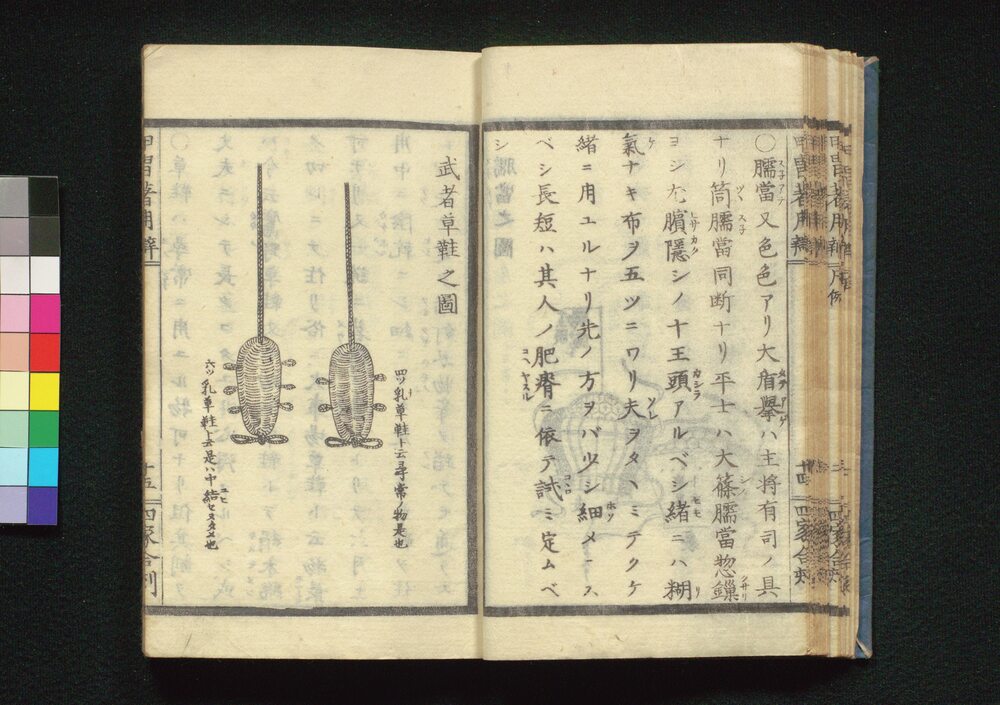 ○臑當又色色アリ大循擧ハ主將有司ノ具
ナリ筒臑當同断ナリ平士ハ大篠臑當惣鏁
ヨシ尤臏隱シノ十王頭アルベシ緒ニハ糊
氣ナキ布ヲ五ツニワリ夫ヲタヽミテクケ
緒ニ用ユルナリ先ノ方ヲバ少シ細メニス
ベシ長短ハ其人ノ肥瘠ニ依テ試ミ定ムベ
シ
武者草鞋之圖
四ツ乳草鞋ト云尋常ノ物是也
六ツ乳草鞋ト云是ハ中結セヌタメ也
甲冑著用辨
十五
四家合刻